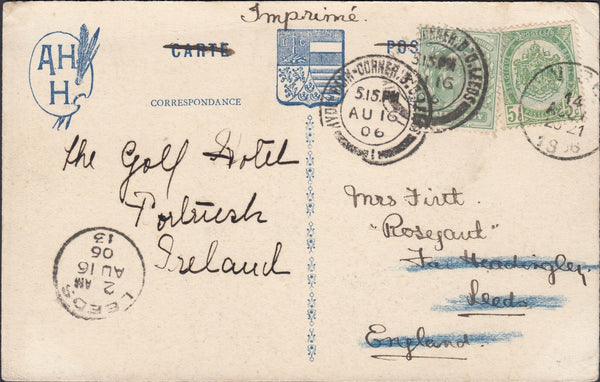 Imprimé.
AH
H
CARTE
POS
CORRESPONDANCE
CORNER.B.O.LEEDS
5.15.PM
AU 16
06
5.15.PM
14
1906
The Golf Hotel
Portrush
Ireland
Mrs Firth.
"Rosegaut"
Far Headingley
Leeds
England.
LEEDS
2 AM
AU 16
06
13